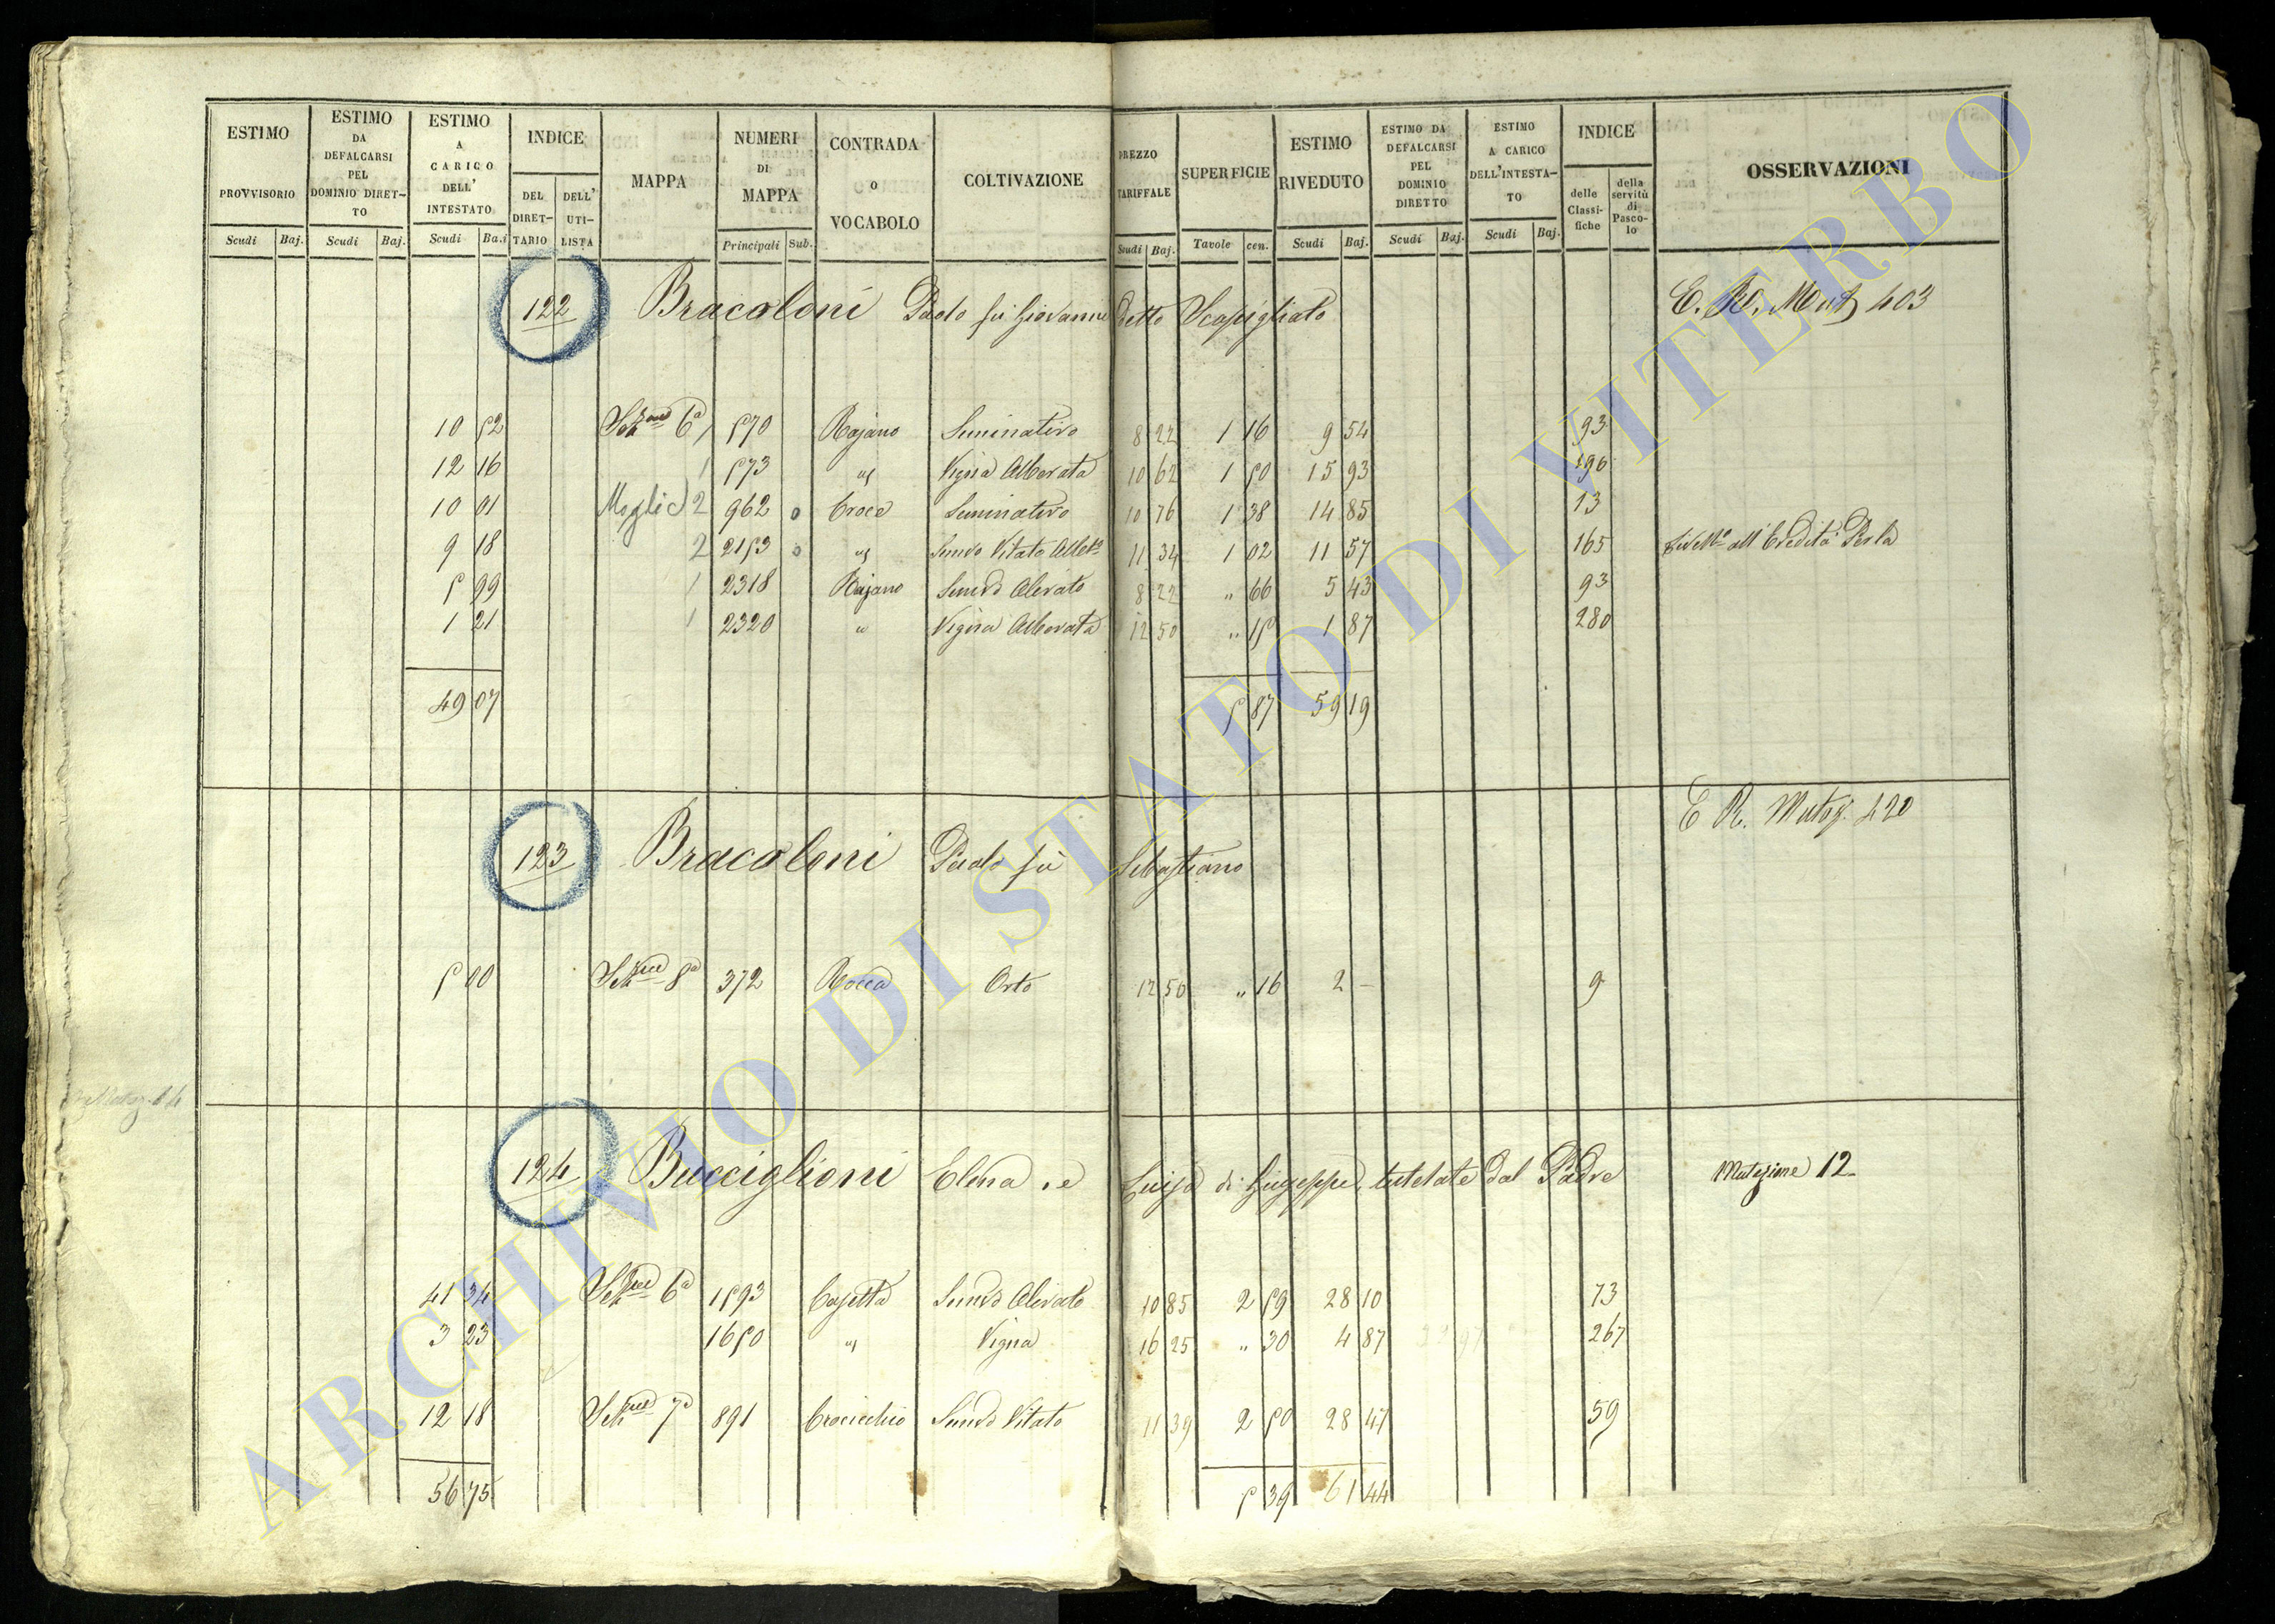 ESTIMO PROVVISORIO Scudi Baj.
ESTIMO DA DEFALCARSI PEL DOMINIO DIRET-TO Scudi Baj.
ESTIMO A CARICO DELL' INTESTATO Scudi Ba.i
INDICE DEL DIRET-TARIO DELL' UTI-LISTA
MAPPA
NUMERI DI MAPPA Principali Sub.
CONTRADA O VOCABOLO
COLTIVAZIONE
PREZZO TARIFFALE Scudi Baj.
SUPERFICIE Tavole cen.
ESTIMO RIVEDUTO Scudi Baj.
ESTIMO DA DEFALCARSI PEL DOMINIO DIRETTO Scudi Baj.
ESTIMO A CARICO DELL'INTESTA-TO Scudi Baj.
INDICE delle Classi-fiche della servitù di Pasco-lo
OSSERVAZIONI
122 Bracaloni Paolo fù Giovanni detto Scapigliato E. R. Mut 403
10 52 Sezne 6a 1 570 Rajano Seminativo 8 22 1 16 9 54 93
12 16 1 573 " Vigna Alberata 10 62 1 50 15 93 196
10 01 Moglie 2 962 0 Croce Seminativo 10 76 1 38 14 85 13
9 18 2 2153 0 " Semvo Vitato Albto 11 34 1 02 11 57 165 all' Eredità Perla
5 99 1 2318 Rajano Semvo Olivato 8 22 " 66 5 43 93
1 21 1 2320 " Vigna Alberata 12 50 " 15 1 87 280
49 07 5 87 59 19
123 Bracaloni Paolo fù Sebastiano E R. Mutaz. 420
5 00 Sezne 8a 372 Rocca Orto 12 50 " 16 2 – 9
124 Bucciglioni Elena, e Luisa di Giuseppe, tutelate dal Padre Mutazione 12
41 34 Sezne 6a 1593 Casetta Semvo Olivato 10 85 2 59 28 10 73
3 23 1650 " Vigna 16 25 " 30 4 87 267
12 18 Sezne 7a 891 Crocicchio Semvo Vitato 11 39 2 50 28 47 59
56 75 5 39 61 44
ARCHIVIO DI STATO DI VITERBO